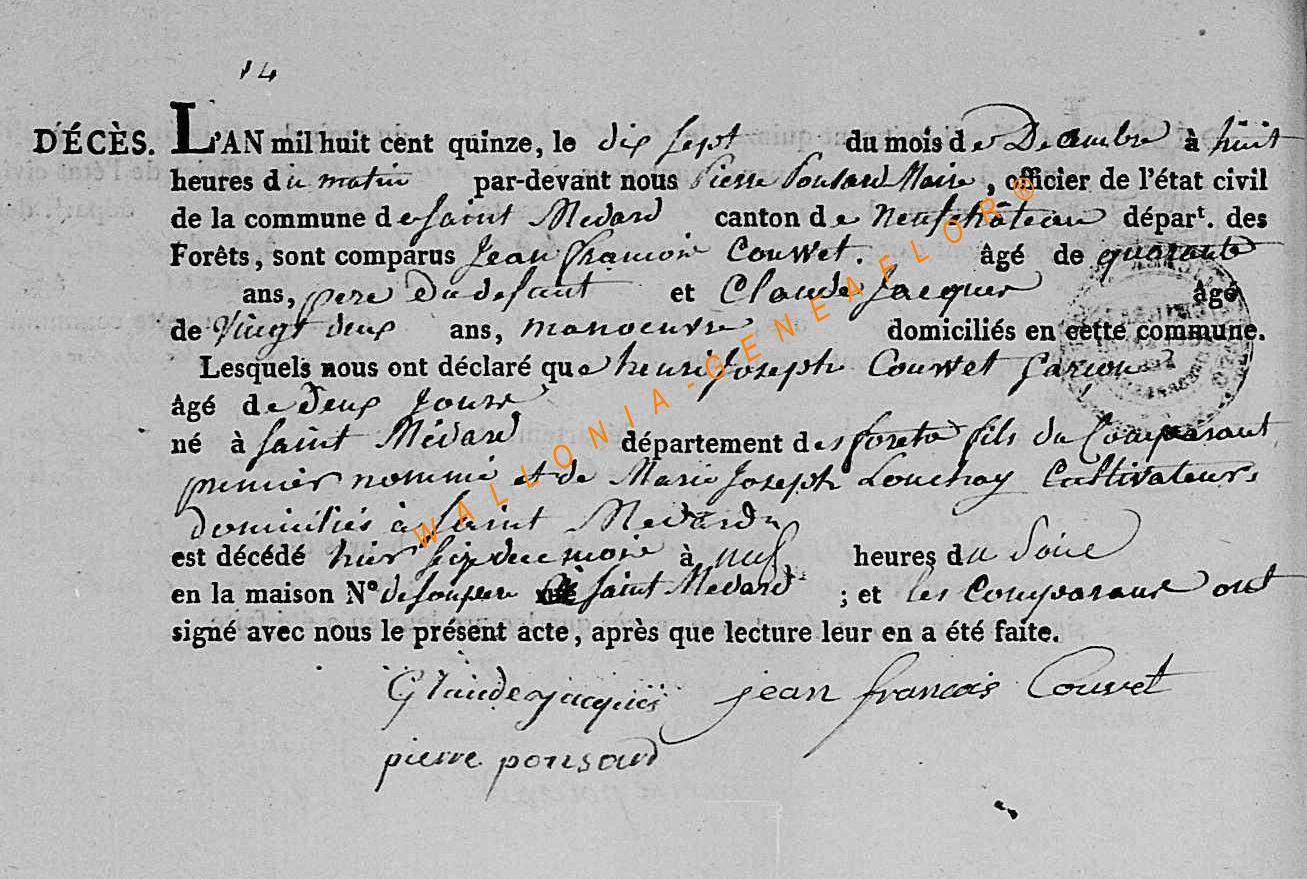 14
DÉCÈS. L'AN mil huit cent quinze, le dix sept du mois de Decembre à huit
heures du matin par-devant nous Pierre Ponsard Maire, officier de l'état civil
de la commune de Saint Medard canton de Neufchâteau départ. des
Forêts, sont comparus Jean François Couvvet. âgé de quarante
ans, pere du defunt et Claude Jacques âgé
de vingt deux ans, manoeuvre domiciliés en cette commune.
Lesquels nous ont déclaré que henri Joseph Couvvet garçon
âgé de deux jours
né à Saint Médard département des forets fils du Comparant
premier nommé et de Marie Joseph Louchay Cultivateurs
domiciliés à Saint Medard
est décédé hier du mois à neuf heures du Soire
en la maison N° de son pere Saint Medard ; et les Comparans ont
signé avec nous le présent acte, après que lecture leur en a été faite.
Glaude jacques jean francois Couvet
pierre ponsard
WALLONIA-GENEAFLOR®